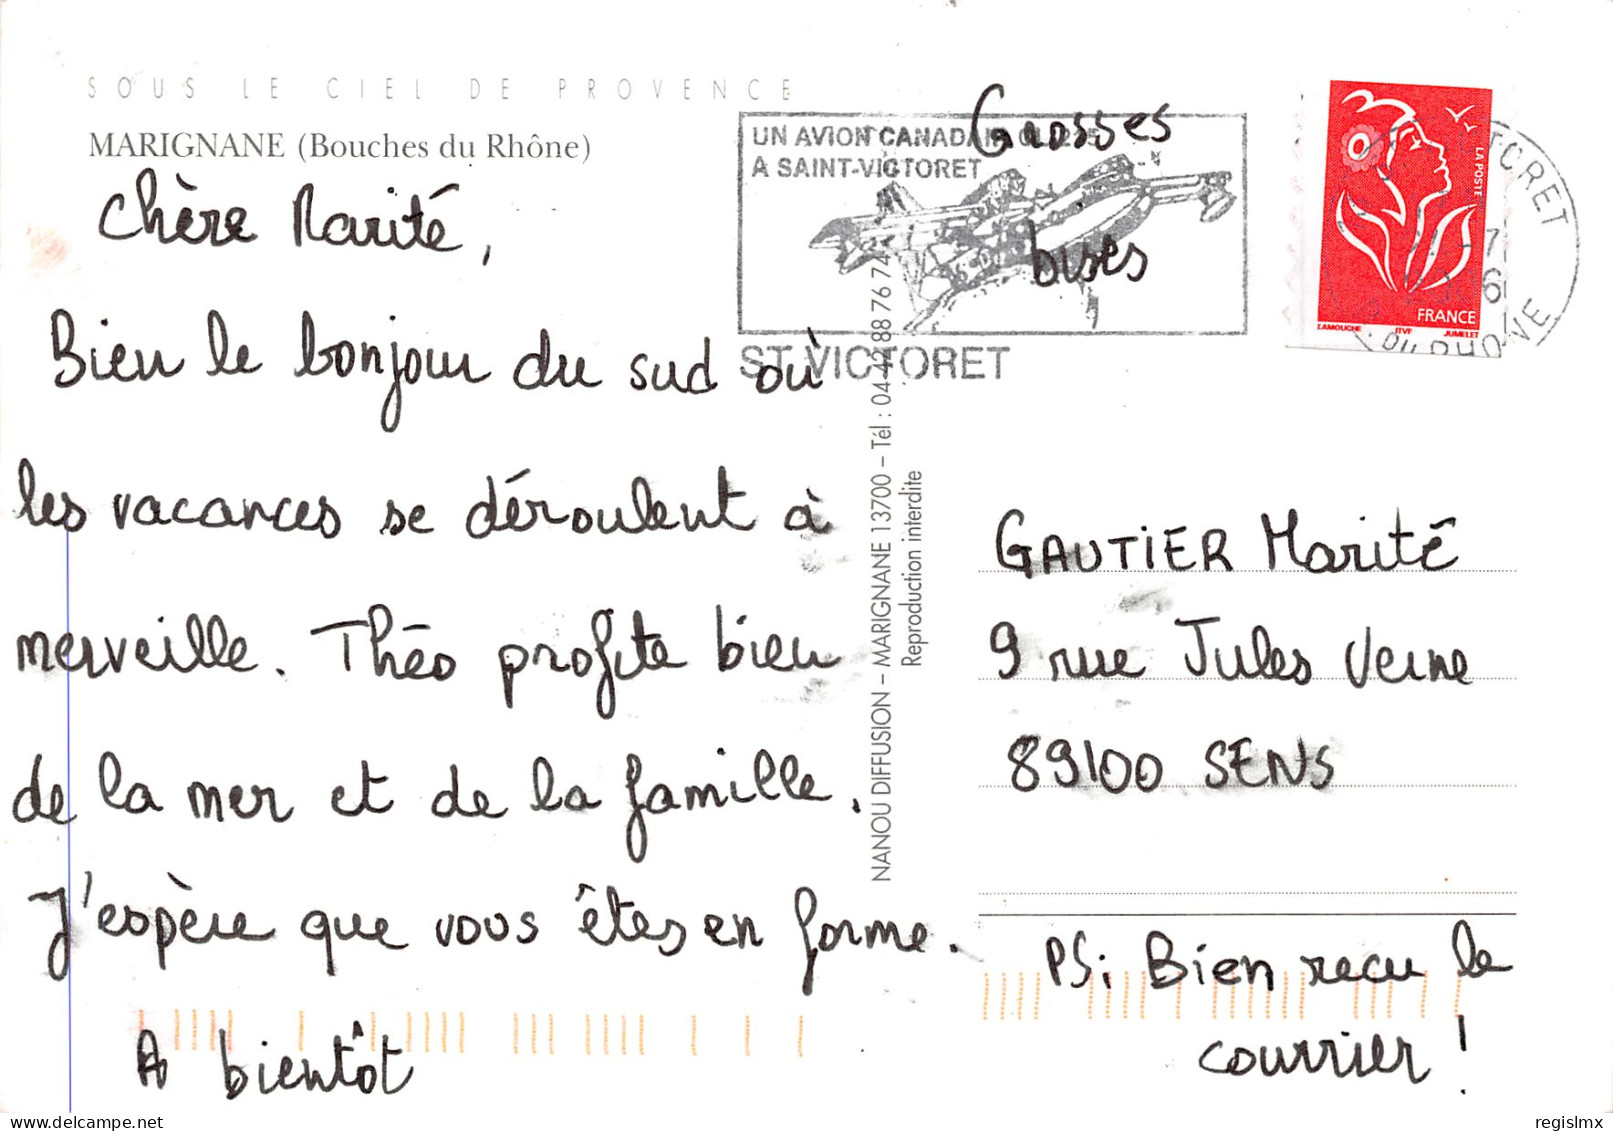 SOUS LE CIEL DE PROVENCE
MARIGNANE (Bouches du Rhône)
Chère Marité,
Bien le bonjour du sud où
les vacances se déroulent à
merveille. Théo profite bien
de la mer et de la famille.
J'espère que vous êtes en forme.
A bientôt
Grosses
bises
UN AVION CANADAIR
A SAINT-VICTORET
ST VICTORET
NANOU DIFFUSION – MARIGNANE 13700 – Tél : 04 42 88 76 74
Reproduction interdite
LA POSTE
FRANCE
LAMOUCHE ITVF JUMELET
DU RHONE
GAUTIER Marité
9 rue Jules Verne
89100 SENS
PS: Bien recu le
courrier !
regislmx